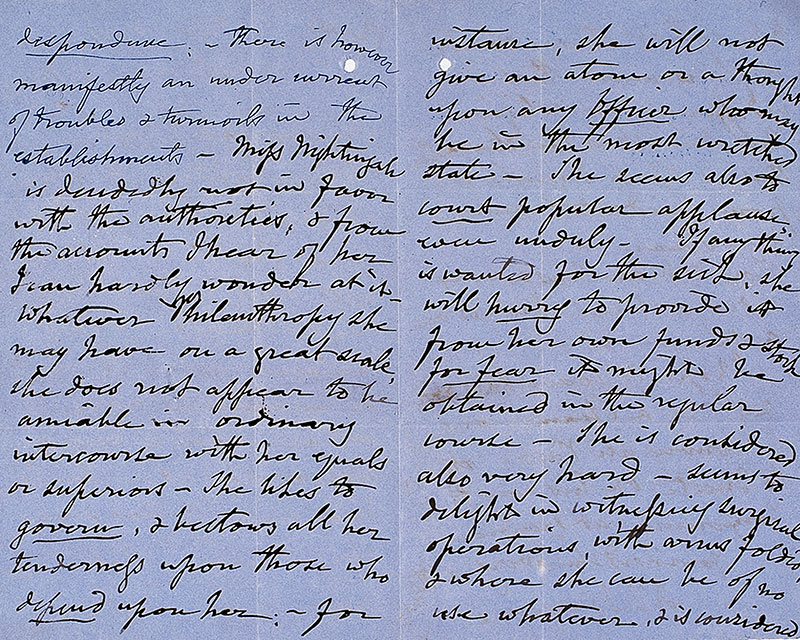 despondence; – There is however
manifestly an under current
of troubles & turmoils in the
establishments – Miss Nightingale
is decidedly not in favor
with the authorities, & from
the accounts I hear of her
I can hardly wonder at it –
whatever Philanthropy she
may have on a great scale,
she does not appear to be
amiable in ordinary
intercourse with her equals
or superiors – She likes to
govern, & bestows all her
tenderness upon those who
depend upon her; – for
instance, she will not
give an atom or a thought
upon any officer who may
be in the most wretched
state – She seems also to
court popular applause
even unduly – If anything
is wanted for the sick, she
will hurry to provide it
from her own funds & stock
for fear it might be
obtained in the regular
course – She is considered
also very hard – seems to
delight in witnessing surgical
operations, with arms folded
& where she can be of no
use whatever, & is considered